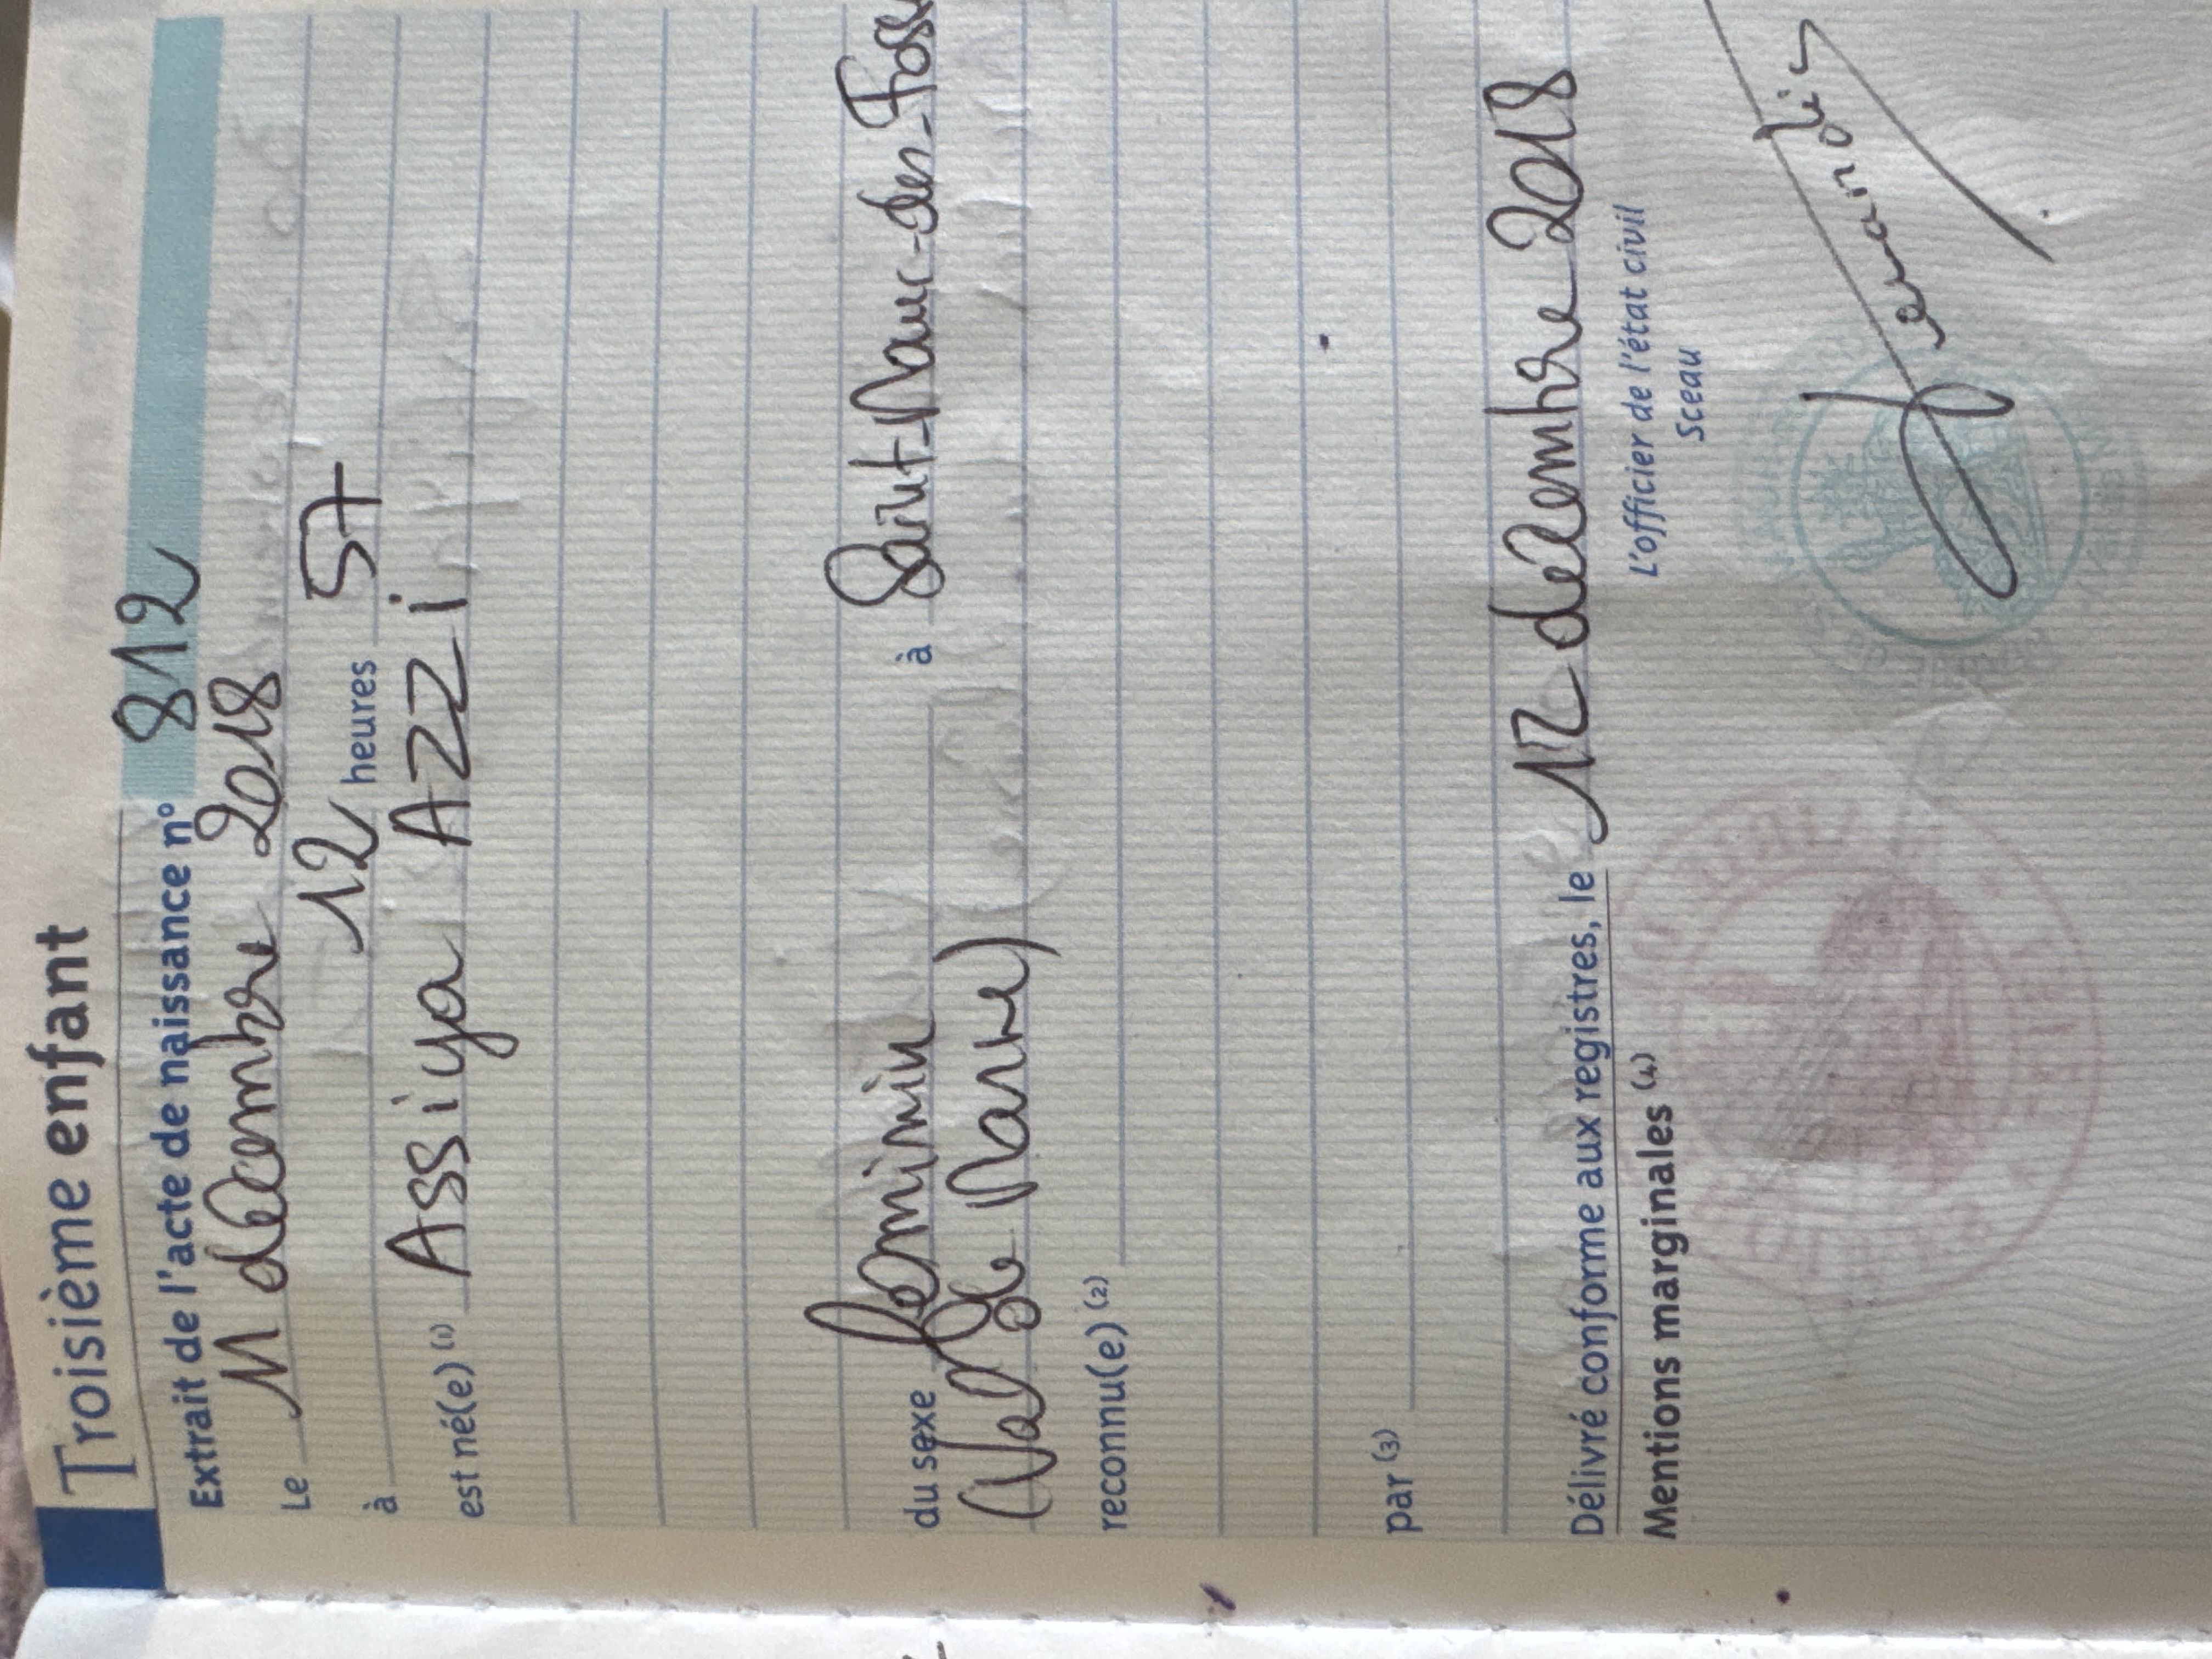 Troisième enfant
Extrait de l'acte de naissance n° 812
Le 11 décembre 2018
à 12 heures 57
est né(e) (1) Assiya AZZI
du sexe féminin à Saint-Maur-des-Foss
(Val de Marne)
reconnu(e) (2)
par (3)
Délivré conforme aux registres, le 12 décembre 2018
Mentions marginales (4)
L'officier de l'état civil
Sceau